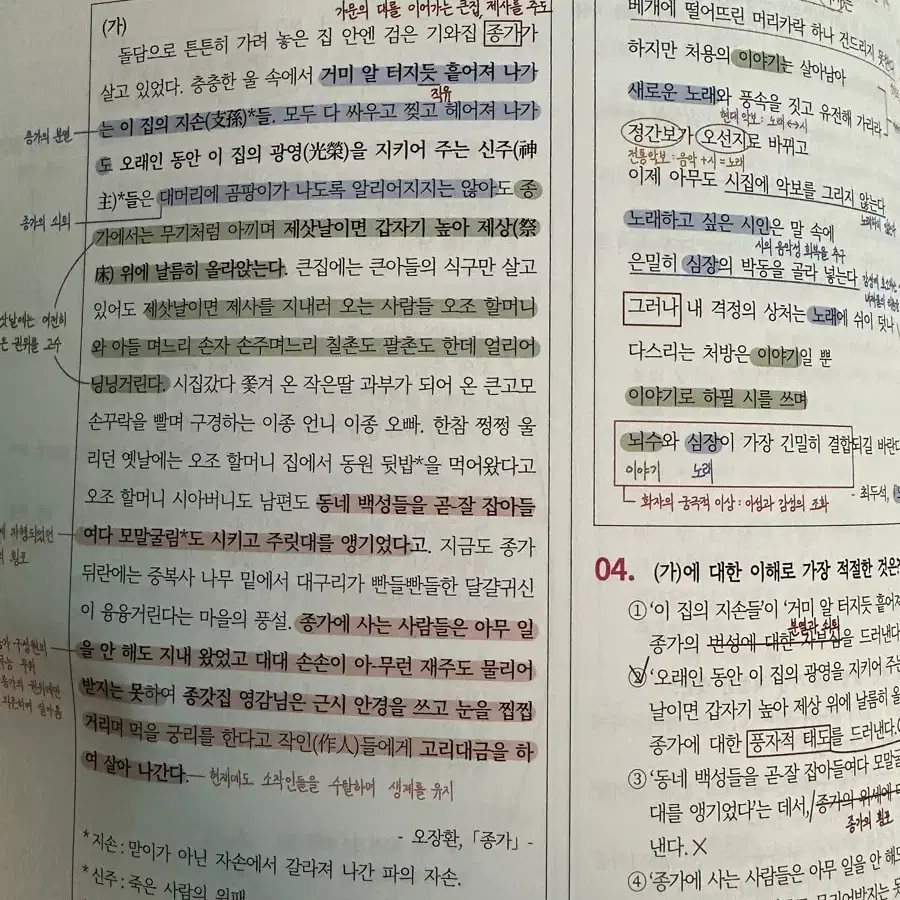 가문의 대를 이어가는 큰집, 제사를 주도
(가)
돌담으로 튼튼히 가려 놓은 집 안엔 검은 기와집 종가가
살고 있었다. 충충한 울 속에서 거미 알 터지듯 흩어져 나가
직유
는 이 집의 지손(支孫)*들. 모두 다 싸우고 찢고 헤어져 나가
종가의 분열
도 오래인 동안 이 집의 광영(光榮)을 지키어 주는 신주(神
主)*들은 대머리에 곰팡이가 나도록 알리어지지는 않아도 종
종가의 쇠퇴
가에서는 무기처럼 아끼며 제삿날이면 갑자기 높아 제상(祭
床) 위에 날름히 올라앉는다. 큰집에는 큰아들의 식구만 살고
있어도 제삿날이면 제사를 지내러 오는 사람들 오조 할머니
삿날에는 여전히
와 아들 며느리 손자 손주며느리 칠촌도 팔촌도 한데 얼리어
은 권위를 고수
닝닝거린다. 시집갔다 쫓겨 온 작은딸 과부가 되어 온 큰고모
손꾸락을 빨며 구경하는 이종 언니 이종 오빠. 한참 쩡쩡 울
리던 옛날에는 오조 할머니 집에서 동원 뒷밥*을 먹어왔다고
오조 할머니 시아버니도 남편도 동네 백성들을 곧-잘 잡아들
여다 모말굴림*도 시키고 주릿대를 앵기었다고. 지금도 종가
에 자행되었던
횡포
뒤란에는 중복사 나무 밑에서 대구리가 빤들빤들한 달걀귀신
이 융융거린다는 마을의 풍설. 종가에 사는 사람들은 아무 일
을 안 해도 지내 왔었고 대대 손손이 아-무런 재주도 물리어
종가 구성원의
종가의 권위에만
받지는 못하여 종갓집 영감님은 근시 안경을 쓰고 눈을 찝찝
의존하며 살아옴
거리며 먹을 궁리를 한다고 작인(作人)들에게 고리대금을 하
여 살아 나간다.
현재에도 소작인들을 수탈하며 생계를 유지
- 오장환, 「종가」 -
* 지손 : 맏이가 아닌 자손에서 갈라져 나간 파의 자손.
* 신주 : 죽은 사람의 위패.
베개에 떨어뜨린 머리카락 하나 건드리지 못한다
하지만 처용의 이야기는 살아남아
새로운 노래와 풍속을 짓고 유전해 가리라
현대 악보 : 노래↔시
정간보가 오선지로 바뀌고
전통악보 : 음악+시=노래
이제 아무도 시집에 악보를 그리지 않는다
노래하고 싶은 시인은 말 속에
시의 음악성 회복을 추구
은밀히 심장의 박동을 골라 넣는다
그러나 내 격정의 상처는 노래에 쉬이 덧나
다스리는 처방은 이야기일 뿐
이야기로 하필 시를 쓰며
뇌수와 심장이 가장 긴밀히 결합되길 바란다
이야기 노래
화자의 궁극적 이상 : 이성과 감성의 조화
- 최두석,
04. (가)에 대한 이해로 가장 적절한 것은?
① '이 집의 지손들'이 '거미 알 터지듯 흩어져
분열과 쇠퇴
종가의 번성에 대한 자부심을 드러낸다
② '오래인 동안 이 집의 광영을 지키어 주는
날이면 갑자기 높아 제상 위에 날름히 올
종가에 대한 풍자적 태도를 드러낸다.
③ '동네 백성들을 곧-잘 잡아들여다 모말굴
대를 앵기었다'는 데서, 종가의 위세에
종가의 횡포
낸다. X
④ '종가에 사는 사람들은 아무 일을 안 해도